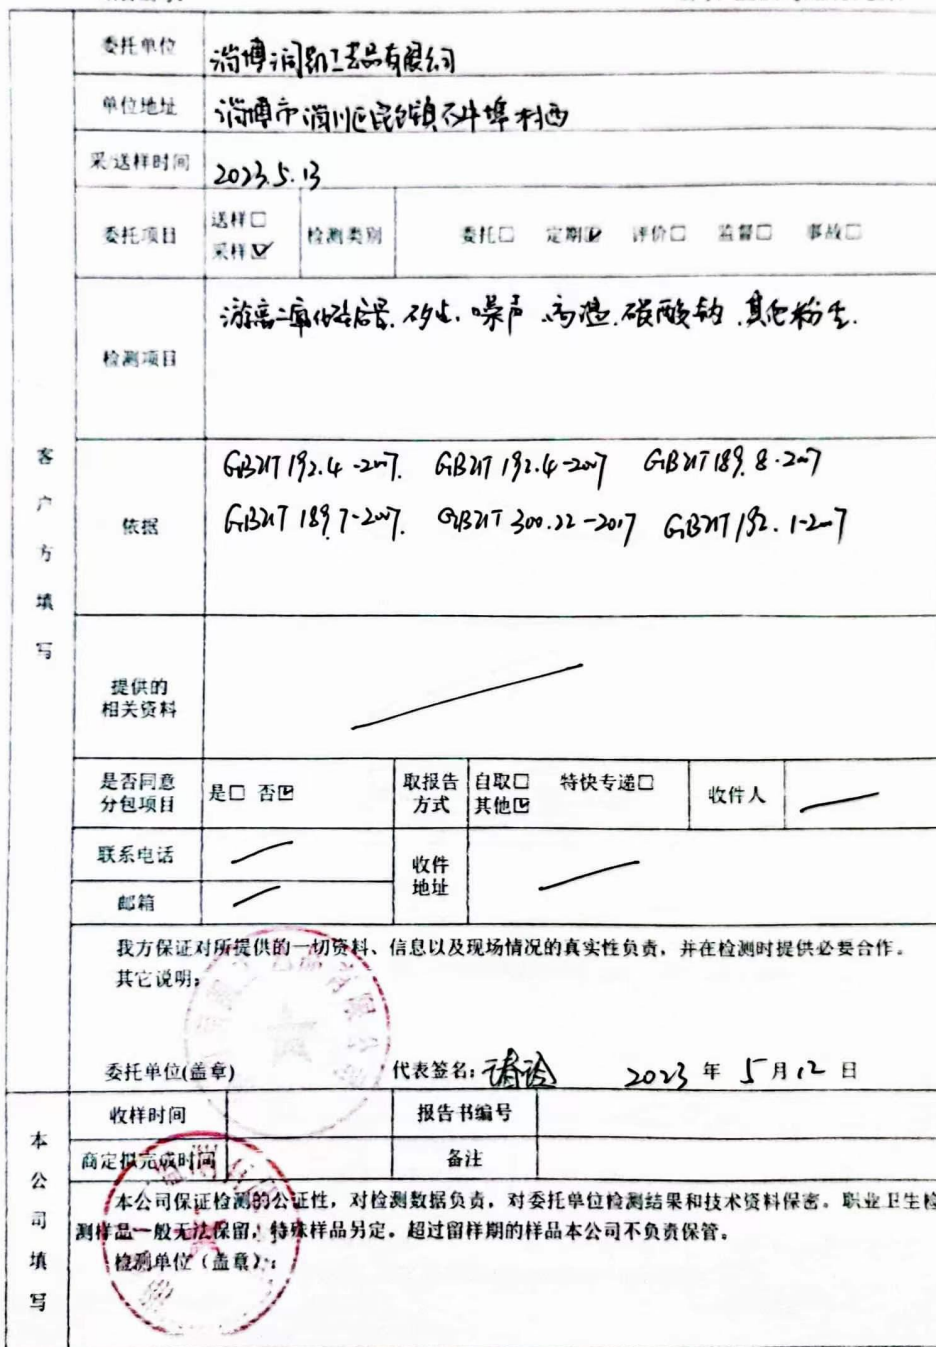 委托单位 淄博润韵工艺品有限公司
单位地址 淄博市淄川区昆仑镇石牛埠村西
采/送样时间 2023.5.13
委托项目 送样□ 采样☑ 检测类别 委托□ 定期☑ 评价□ 监督□ 事故□
检测项目 游离二氧化硅含量、矽尘、噪声、高温、碳酸钠、其他粉尘.
客户方填写
依据 GBZ/T 192.4-2007. GBZ/T 192.4-2007 GBZ/T 189.8-2007
GBZ/T 189.7-2007. GBZ/T 300.22-2017 GBZ/T 192.1-2007
提供的
相关资料
是否同意
分包项目 是□ 否☑ 取报告
方式 自取□ 特快专递□
其他☑ 收件人
联系电话 收件
地址
邮箱
我方保证对所提供的一切资料、信息以及现场情况的真实性负责，并在检测时提供必要合作。
其它说明：
委托单位(盖章) 代表签名： 2023 年 5 月 12 日
收样时间 报告书编号
商定拟完成时间 备注
本公司填写
本公司保证检测的公证性，对检测数据负责，对委托单位检测结果和技术资料保密。职业卫生检
测样品一般无法保留，特殊样品另定。超过留样期的样品本公司不负责保管。
检测单位（盖章）：